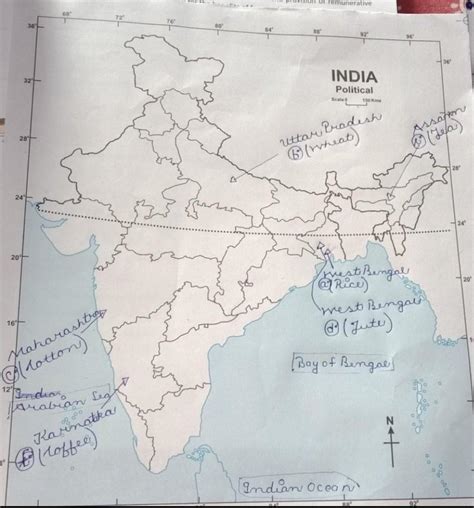 provision of remunerative
68° 72° 76° 84° 88° 92° 96°
36°
32°
28°
24°
16°
12°
8°
36°
28°
24°
20°
INDIA
Political
Scale 0 100 Kms
Uttar Pradesh
ⓑ (Wheat)
Assam
ⓔ (Tea)
West Bengal
ⓐ (Rice)
West Bengal
ⓓ (Jute)
Maharashtra
ⓒ (Cotton)
India
Arabian Sea
Karnatka
ⓕ (Coffee)
Bay of Bengal
N
Indian Ocean